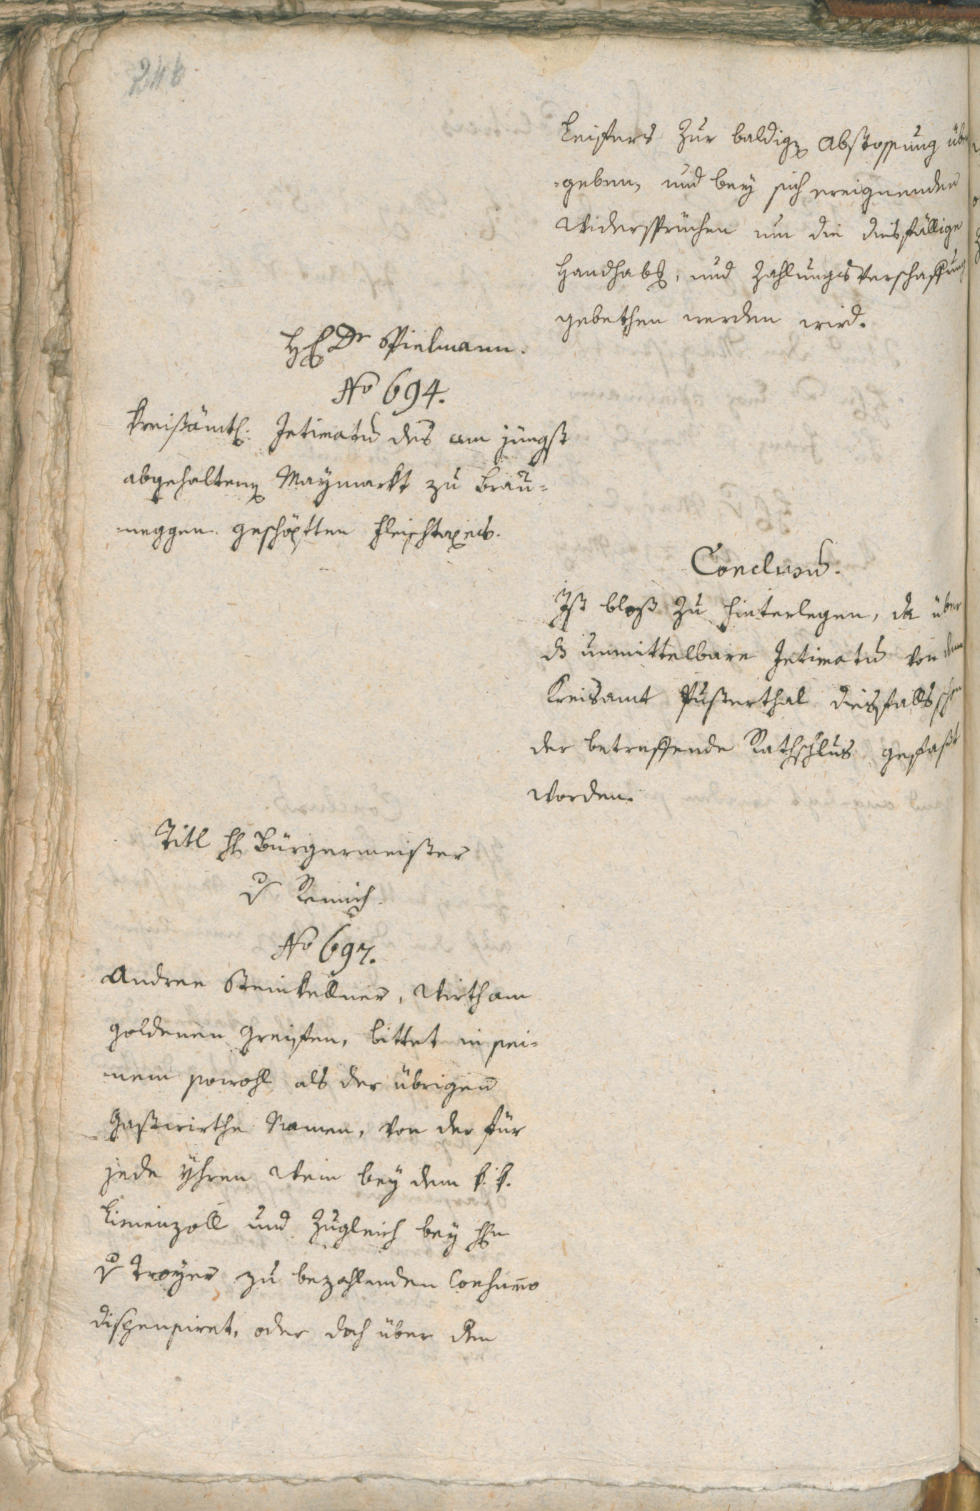 246
Leisters zur baldig Abstossung über
=geben, und bey sich ereignenden
Widersprüchen um die diesfällige
Handhab, und Zahlungs Verschaffung
gebethen werden wird.
H Dr Spielmann.
No 694.
Kreisämtl: Intimatum des am jüngst
abgehalten Maymarkt zu Brau=
neggen geschöpften Fleischtaxes.
Conclusum.
Ist bloß zu hinterlegen, da über
ds unmittelbare Intimatum von dem
Kreisamt Pusterthal diesfalls schon
der betreffende Rathschlus gefaßt
worden.
Titl H Bürgermeister
v Remich.
No 697.
Andree Steinkellner, Wirth am
goldenen Greifen, bittet in sei=
nem sowohl als der übrigen
Gastwirthe Namen, von der für
jede Yhren Wein bey dem k. k.
Linienzoll und zugleich bey Hn
v Troyer zu bezahlenden Consumo
dispensiret, oder doch über den